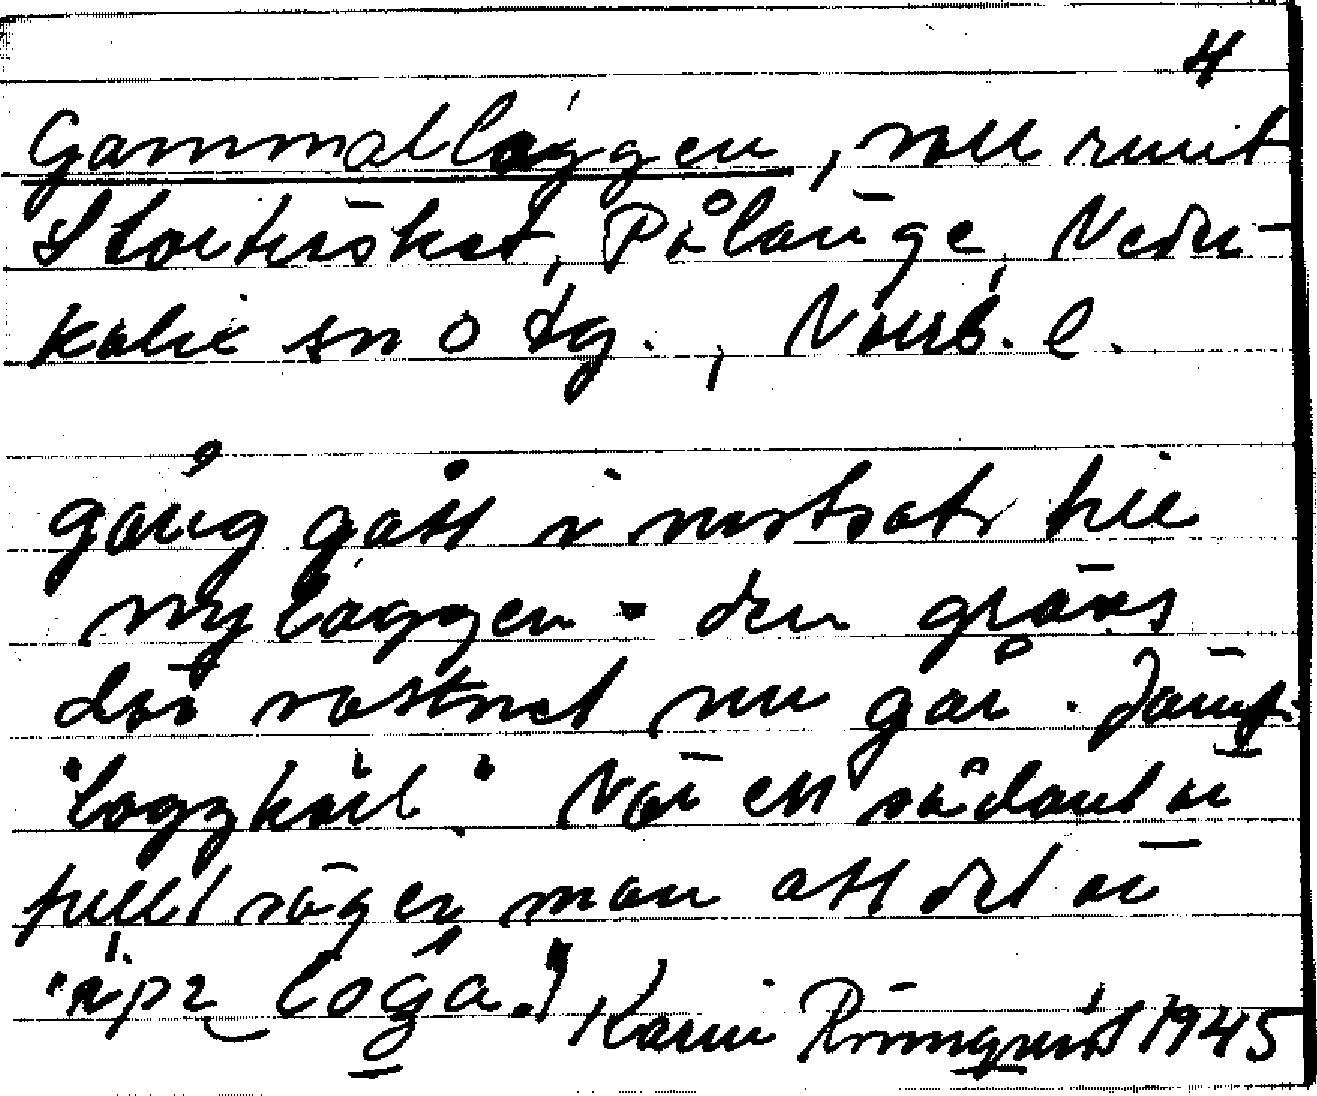 4
Gammallaggen, vall runt
Storträsket, Pålänge, Neder-
kalix sn o tg., Norrb. l.
gång gått i motsats till
nylaggen - den gräns
där vattnet nu går. Jämf.
"laggkärl" När ett sådant är
fullt säger man att det är
loga." Karin Rönnqvist 1945